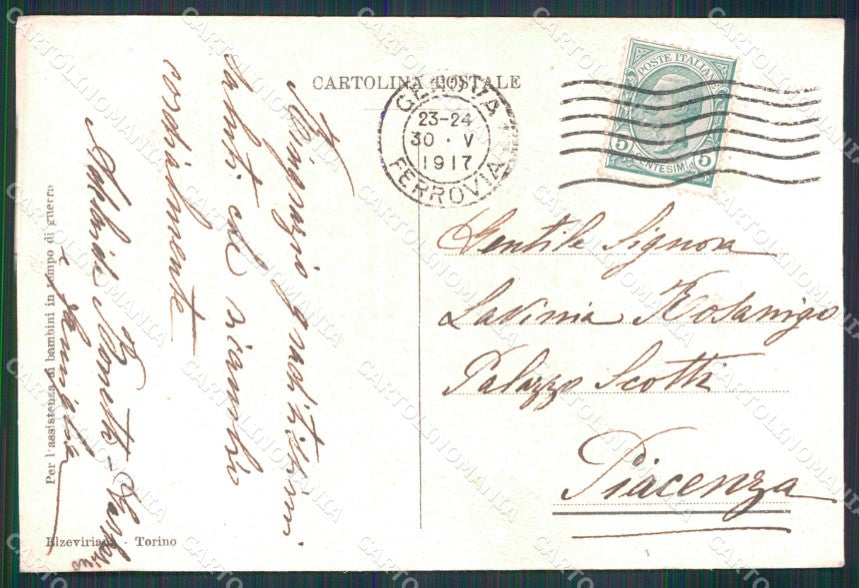 CARTOLINA POSTALE
GENOVA
23-24
30 · V
1917
FERROVIA
POSTE ITALIANE
5 CENTESIMI 5
Gentile Signora
Lavinia Rosanigo
Palazzo Scotti
Piacenza
Ringrazio graditissimi
saluti che ricambio
cordialmente
Bonetti
e famiglia
Per l'assistenza ai bambini in tempo di guerra
Elzeviriana - Torino
CARTOLINOMANIA